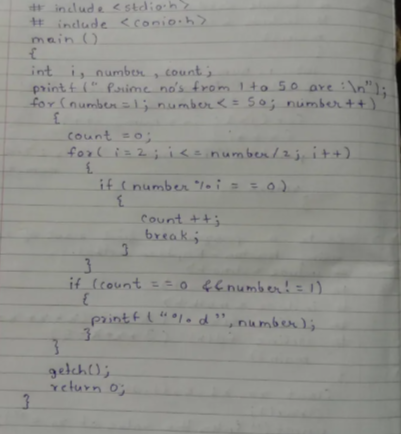 # include <stdio.h>
# include <conio.h>
main ()
{
int i, number, count;
printf (" Prime no's from 1 to 50 are :\n");
for (number=1; number<= 50; number++)
{
count =0;
for( i=2; i<= number/2; i++)
{
if (number % i = = 0)
{
count ++;
break;
}
}
if (count = = 0 && number! = 1)
{
printf ( "% d ", number);
}
}
getch();
return 0;
}